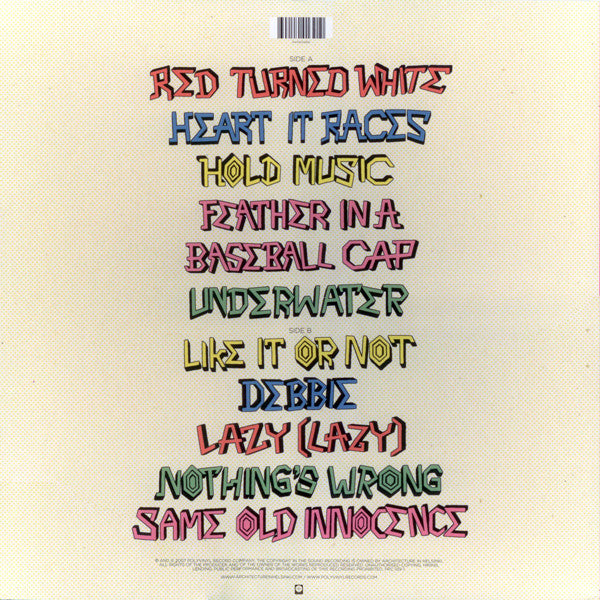 SIDE A
RED TURNED WHITE
HEART IT RACES
HOLD MUSIC
FEATHER IN A
BASEBALL CAP
UNDERWATER
SIDE B
LIKE IT OR NOT
DEBBIE
LAZY (LAZY)
NOTHING'S WRONG
SAME OLD INNOCENCE
℗ AND © 2007 POLYVINYL RECORD COMPANY. THE COPYRIGHT IN THE SOUND RECORDING IS OWNED BY ARCHITECTURE IN HELSINKI.
ALL RIGHTS OF THE PRODUCER AND OF THE OWNER OF THE WORKS REPRODUCED RESERVED. UNAUTHORISED COPYING, HIRING,
LENDING, PUBLIC PERFORMANCE AND BROADCASTING OF THIS RECORDING PROHIBITED. PRC-129-1
WWW.ARCHITECTUREINHELSINKI.COM / WWW.POLYVINYLRECORDS.COM